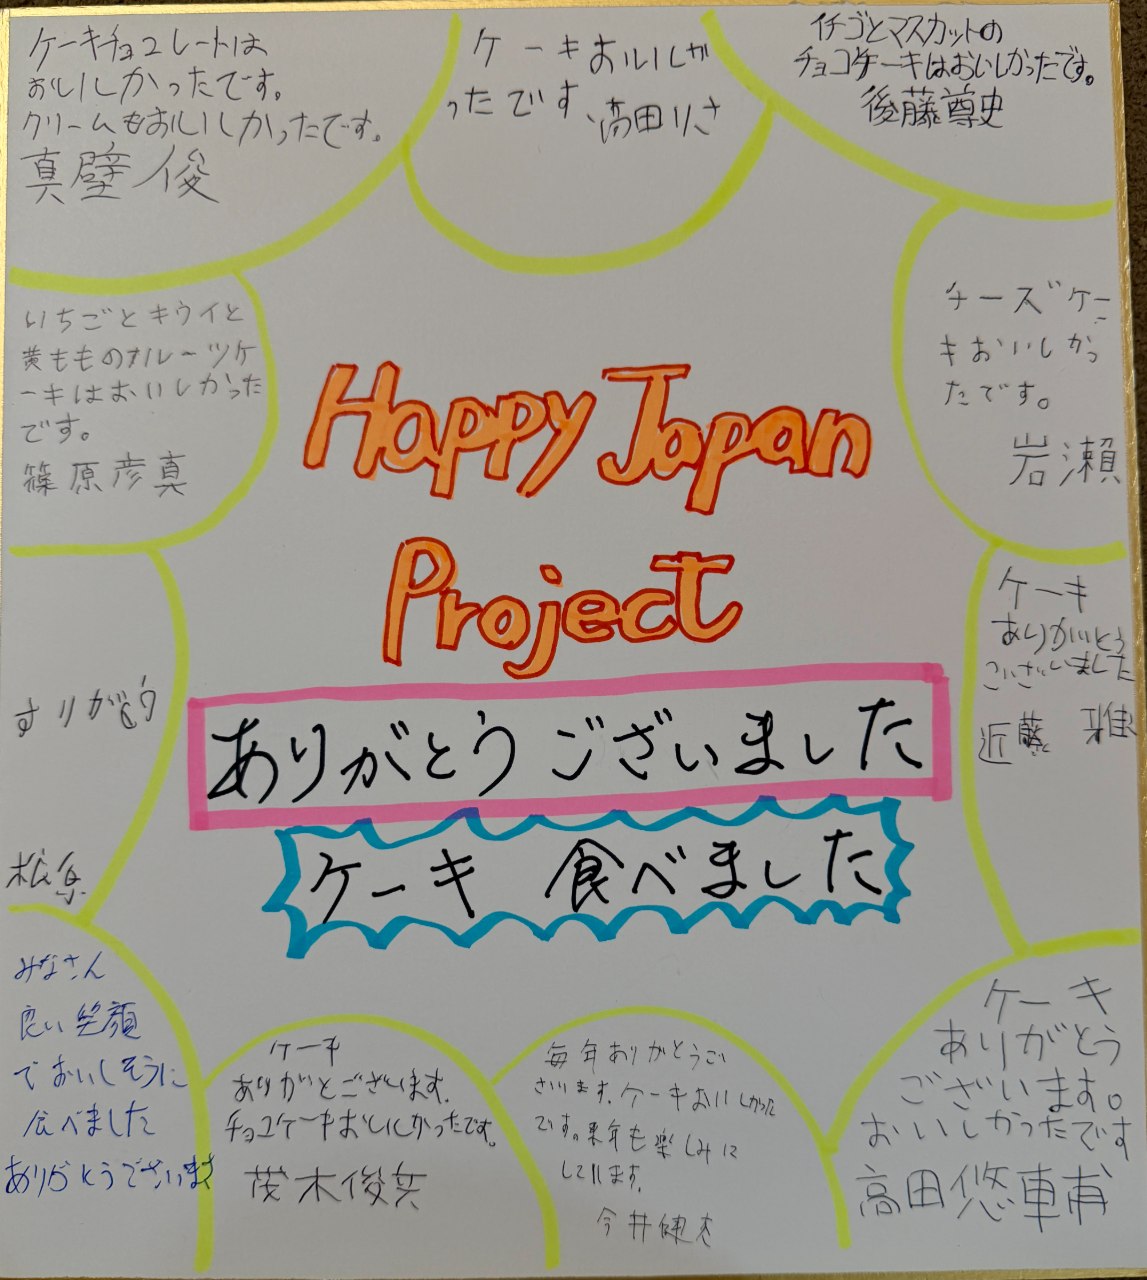 ケーキチョコレートは
おいしかったです。
クリームもおいしかったです。
真壁 俊
ケーキおいしか
ったです
高田りさ
イチゴとマスカットの
チョコケーキはおいしかったです。
後藤尊史
いちごとキウイと
黄もものフルーツケ
ーキはおいしかった
です。
篠原彦真
チーズケー
キおいしかっ
たです。
岩瀬
Happy Japan
Project
ありがとうございました
ケーキ 食べました
ケーキ
ありがとう
ございました
近藤 雅
ありがとう
松
みなさん
良い笑顔
でおいしそうに
食べました
ありがとうございます
ケーキ
ありがとございます.
チョコケーキおいしかったです。
茂木俊兵
毎年ありがとうご
ざいます.ケーキおいしかった
です。来年も楽しみに
しています.
今井健志
ケーキ
ありがとう
ございます。
おいしかったです
高田悠